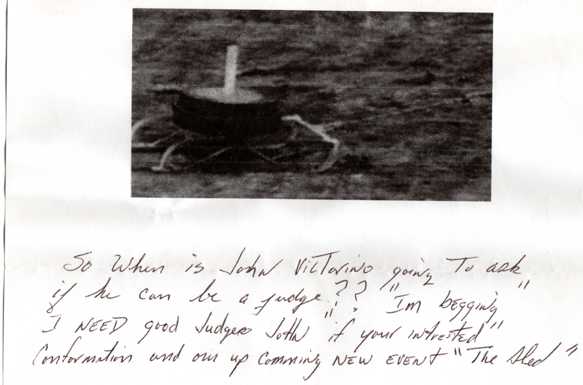 So When is John Victorino "going To ask"
if he can be a judge?? "Im begging"
I NEED good Judges Both if your intrested"
Conformation and our up comming NEW EVENT "The Sled"